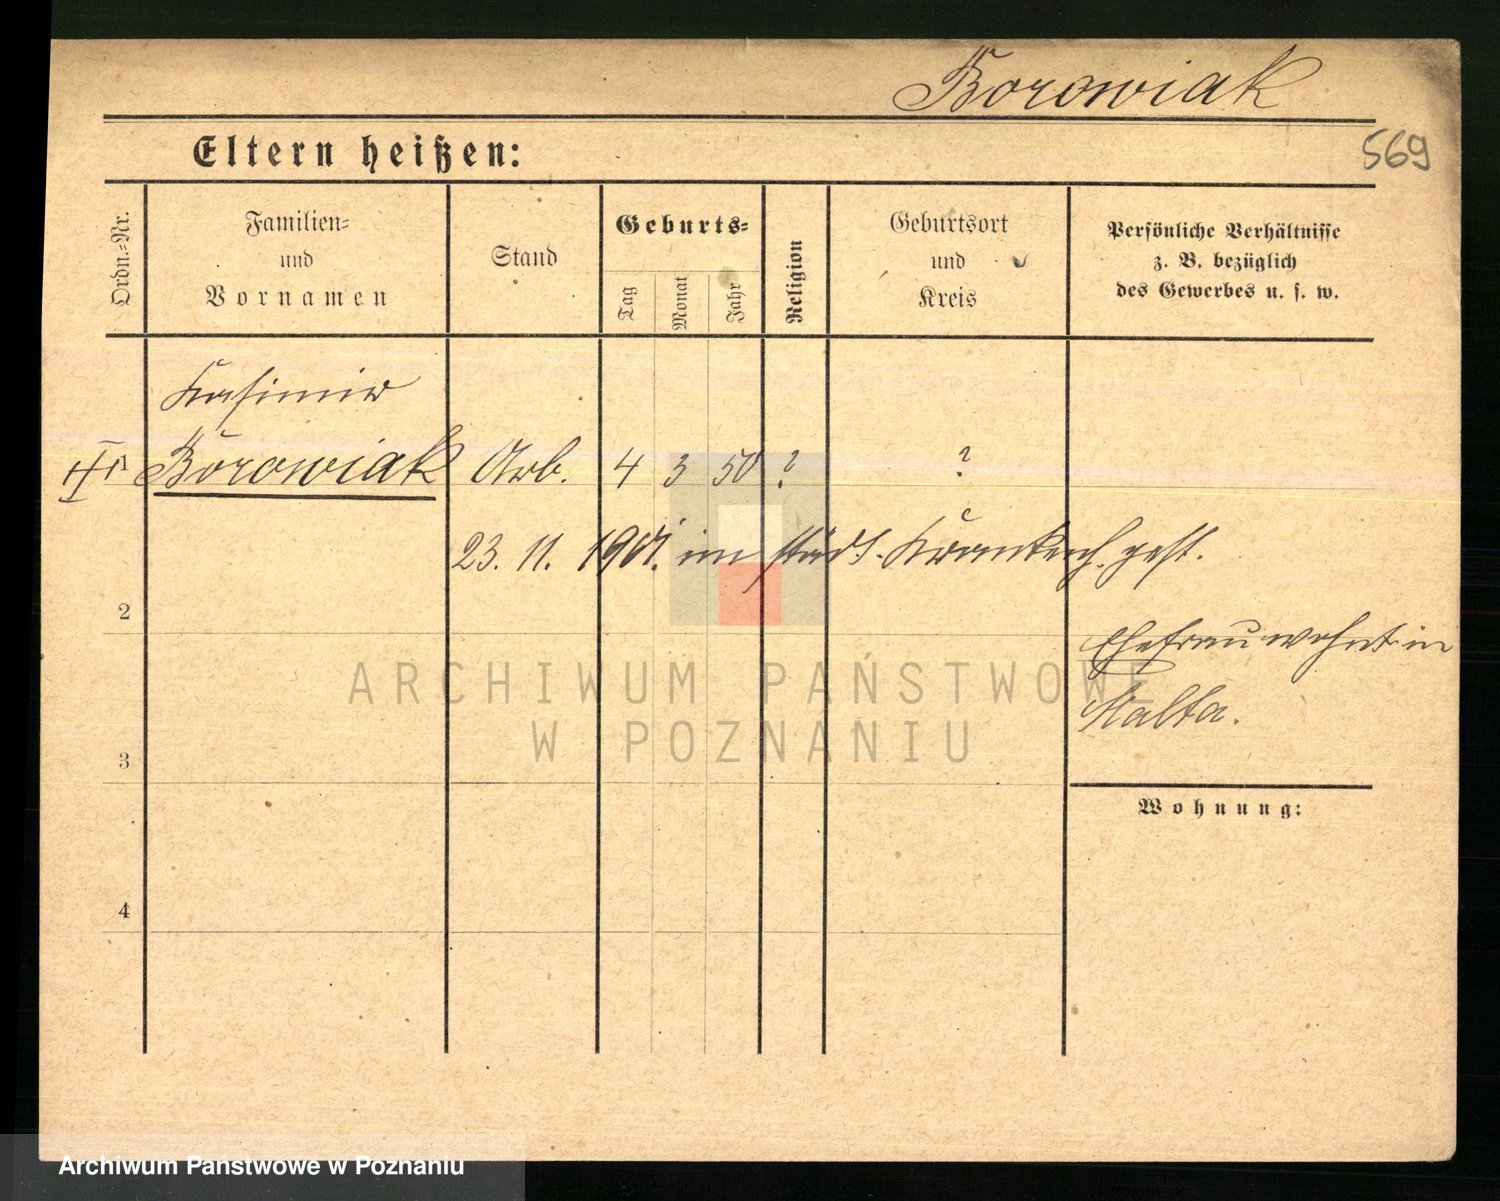 Borowiak
Eltern heißen:
569
Ordn.-Nr.
Familien- und Vornamen
Stand
Geburts-
Tag
Monat
Jahr
Religion
Geburtsort und Kreis
Persönliche Verhältnisse
z. B. bezüglich
des Gewerbes u. s. w.
Kasimir
Borowiak Arb. 4 3 50 ? ?
23. 11. 1901. im städt. Krankenh. gest.
2
Ehefrau wohnt in
Malta.
3
Wohnung:
4
ARCHIWUM PAŃSTWOWE
W POZNANIU
Archiwum Państwowe w Poznaniu